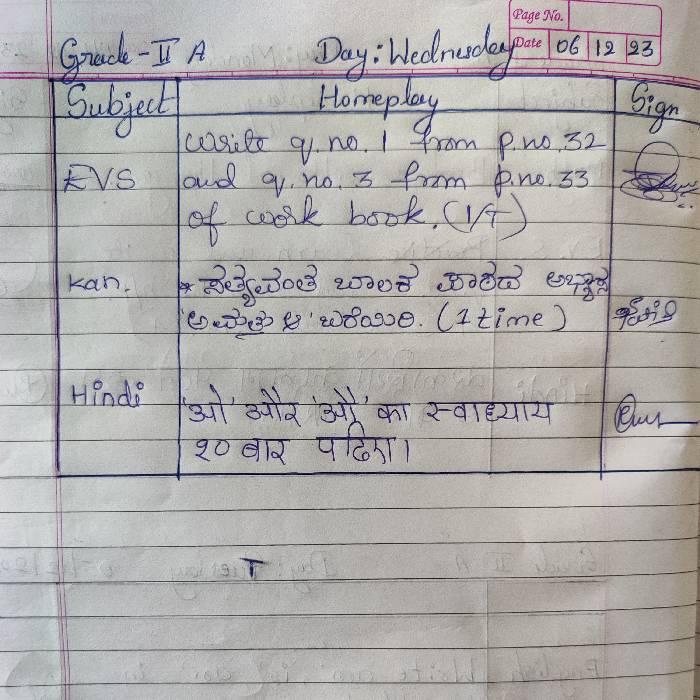 Page No.
Grade - II A Day: Wednesday Date 06 12 23
Subject Homeplay Sign
Write q. no. 1 from p.no. 32
EVS and q. no. 3 from p.no. 33
of work book. (1/T)
Kan. * ಸತ್ಯವಂತ ಬಾಲಕ ಪಾಠದ ಅಭ್ಯಾಸ
'ಅ ಮತ್ತು ಆ' ಬರೆಯಿರಿ. (1 time)
Hindi 'ओ' और 'औ' का स्वाध्याय
१० बार पढिए।
T